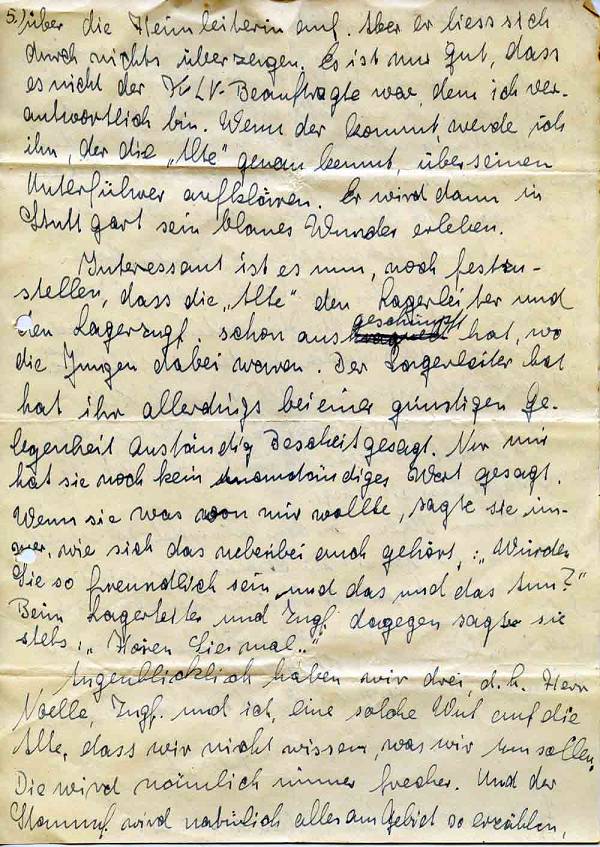 5.) über die Heimleiterin auf. Aber er liess sich
durch nichts überzeugen. Es ist nur gut, dass
es nicht der KLV-Beauftragte war, dem ich ver-
antwortlich bin. Wenn der kommt, werde ich
ihn, der die „Alte" genau kennt, über seinen
Unterführer aufklären. Er wird dann in
Stuttgart sein blaues Wunder erleben.
Interessant ist es nun, noch festzu-
stellen, dass die „Alte" den Lagerleiter und
den Lagerzugf. schon ausgeschimpft hat, wo
die Jungen dabei waren. Der Lagerleiter hat
hat ihr allerdings bei einer günstigen Ge-
legenheit anständig Bescheit gesagt. Nur mir
hat sie noch kein unanständiges Wort gesagt.
Wenn sie was von mir wollte, sagte sie im-
mer, wie sich das nebenbei auch gehört,: „Würden
Sie so freundlich sein und das und das tun?"
Beim Lagerleiter und Zugf. dagegen sagte sie
stets: „Hören Sie mal.."
Augenblicklich haben wir drei, d.h. Herr
Noelle, Zugf. und ich, eine solche Wut auf die
Alte, dass wir nicht wissen, was wir tun sollen.
Die wird nämlich immer frecher. Und der
wird natürlich alles am Gebiet so erzählen,